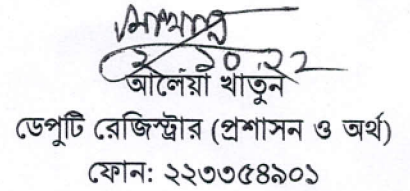 ২.১০.২২
আলেয়া খাতুন
ডেপুটি রেজিস্ট্রার (প্রশাসন ও অর্থ)
ফোন: ২২৩৩৫৪৯০১